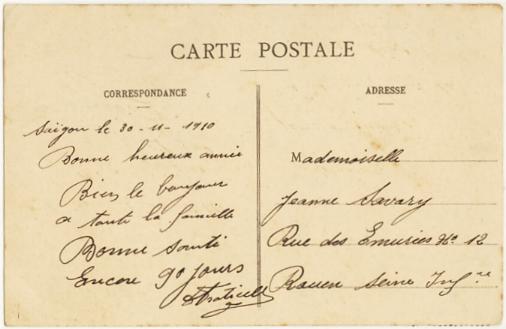 CARTE POSTALE
CORRESPONDANCE
ADRESSE
Saïgon le 30-11-1910
Bonne heureux année
Bien le bonjour
a toute la famille
Bonne santé
Encore 90 jours
Mademoiselle
Jeanne Savary
Rue des Emuries No 12
Rouen Seine Infre